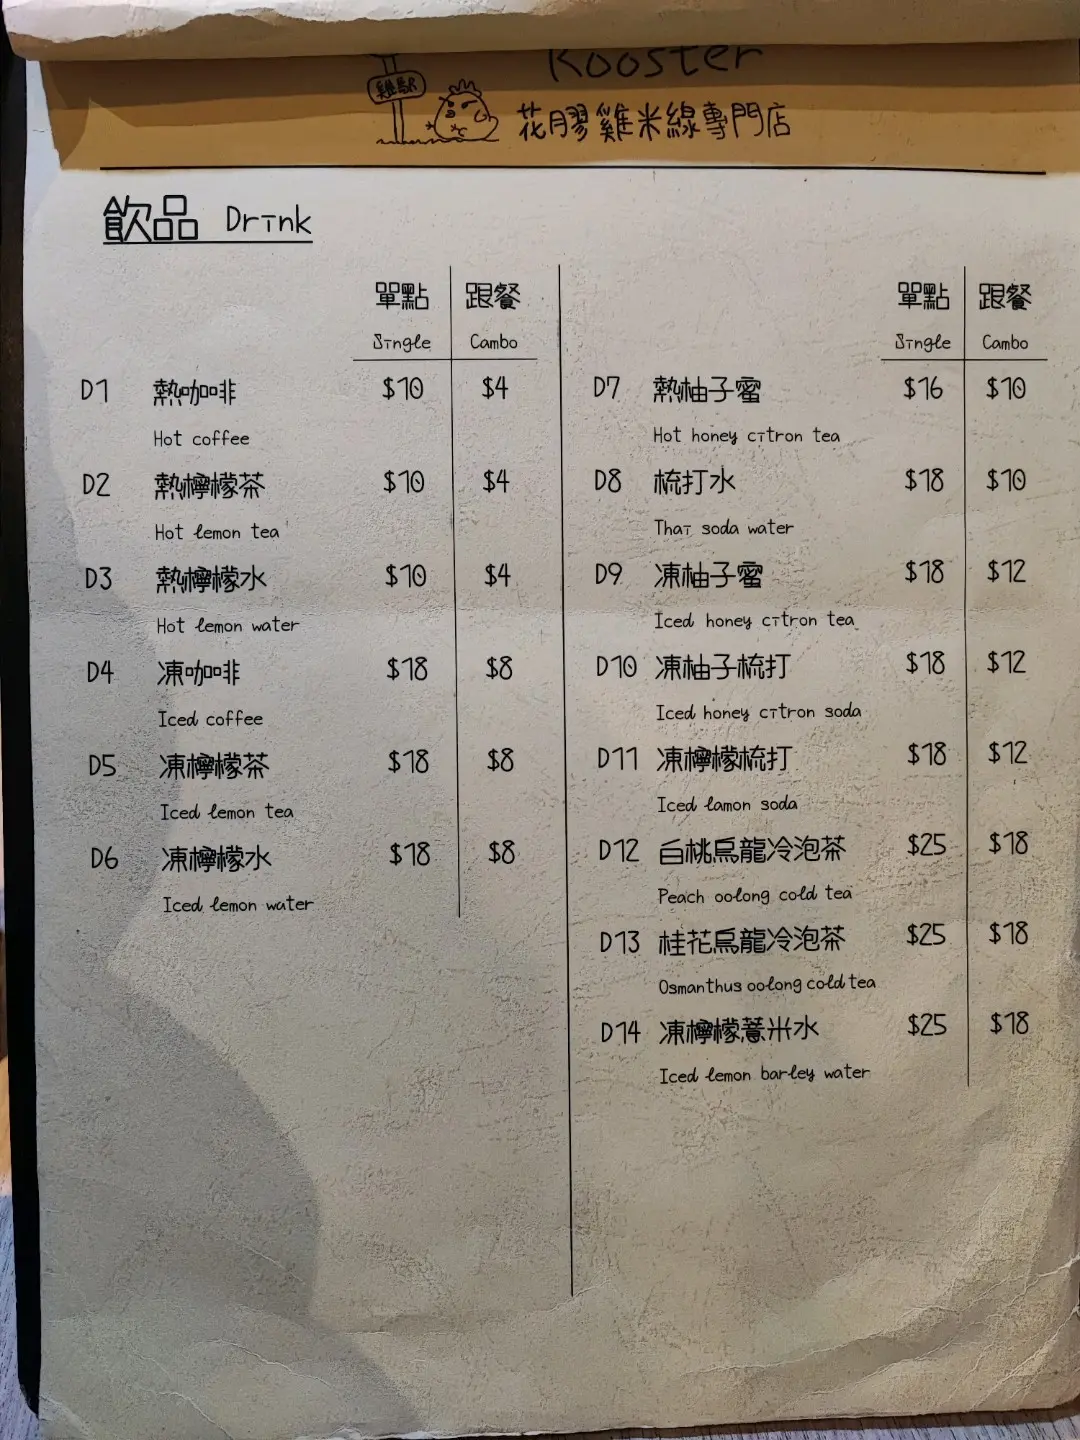 Rooster
雞駅
花膠雞米線專門店
飲品 Drink
單點 跟餐
Single Cambo
D1 熱咖啡 $10 $4
Hot coffee
D2 熱檸檬茶 $10 $4
Hot lemon tea
D3 熱檸檬水 $10 $4
Hot lemon water
D4 凍咖啡 $18 $8
Iced coffee
D5 凍檸檬茶 $18 $8
Iced lemon tea
D6 凍檸檬水 $18 $8
Iced lemon water
單點 跟餐
Single Cambo
D7 熱柚子蜜 $16 $10
Hot honey citron tea
D8 梳打水 $18 $10
Thai soda water
D9 凍柚子蜜 $18 $12
Iced honey citron tea
D10 凍柚子梳打 $18 $12
Iced honey citron soda
D11 凍檸檬梳打 $18 $12
Iced lamon soda
D12 白桃烏龍冷泡茶 $25 $18
Peach oolong cold tea
D13 桂花烏龍冷泡茶 $25 $18
Osmanthus oolong cold tea
D14 凍檸檬薏米水 $25 $18
Iced lemon barley water